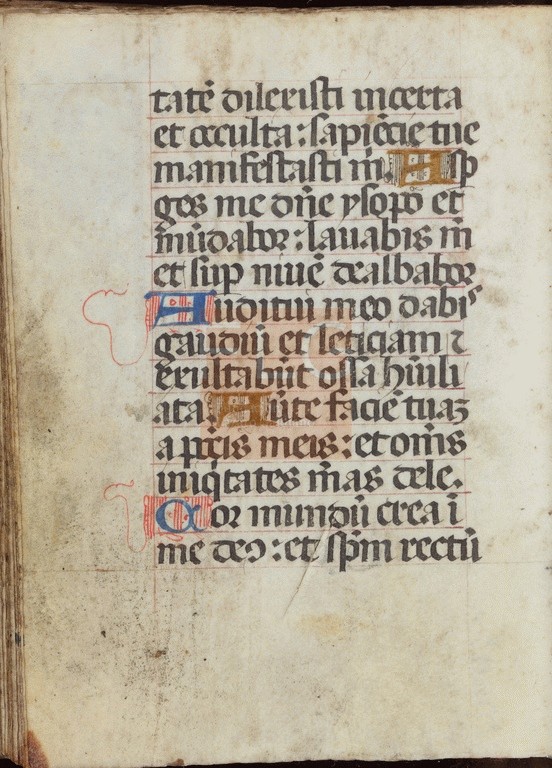 tatē dilexisti incerta
et occulta : sapiēcie tue
manifestasti m̄. Asp
ges me dn̄e ysopo et
mūdabor : lauabis m̄
et sup niuē dealbabor
Auditui meo dabis
gaudiū et leticiam ⁊
exultabūt ossa hūili
ata Aūte faciē tuaꝫ
a pctīs meis : et om̄s
iniq̄tates m̄as dele.
Cor mundū crea ī
me deꝰ : et sp̄m rectū